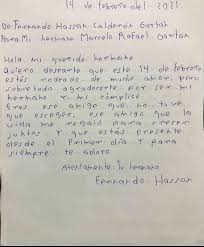 14 de febrero del 2021.
De Fernando Hassan Calderón Gaytan
Para Mi hermano Marcelo Rafael Gaytan
Hola, mi querido hermano
Quiero desearte que este 14 de febrero
estés rodeado de mucho amor, pero
sobretodo agradecerte por ser mi
hermano y mi cómplice.
Eres ese amigo que no tuve
que escoger, ese amigo que la
vida me regaló para crecer
juntos y que estás presente
desde el primer día y para
siempre te adoro.
Atentamente: Tu hermano
Fernando Hassan